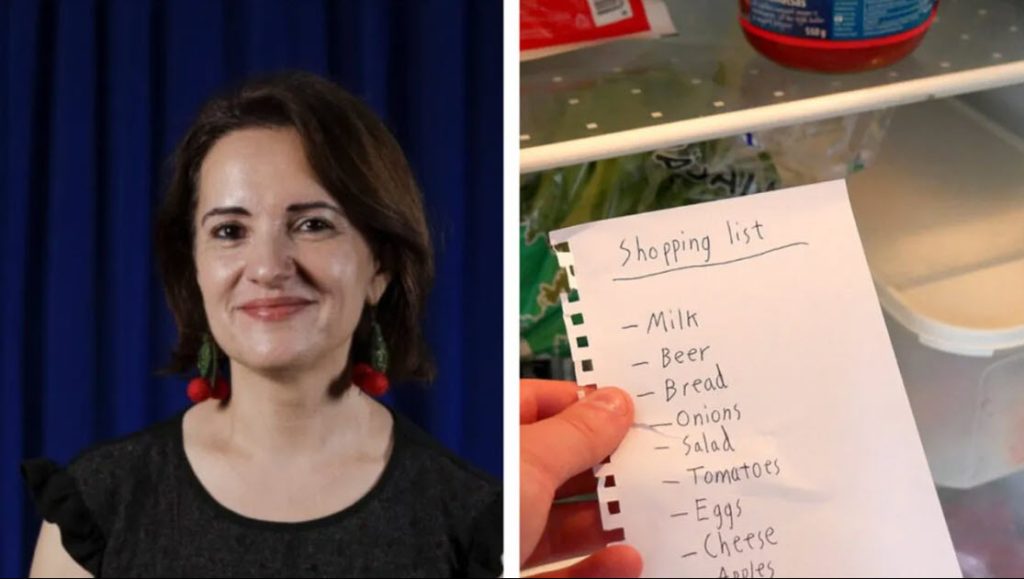 550g
Shopping list
– Milk
– Beer
– Bread
– Onions
– Salad
– Tomatoes
– Eggs
– Cheese
Apples